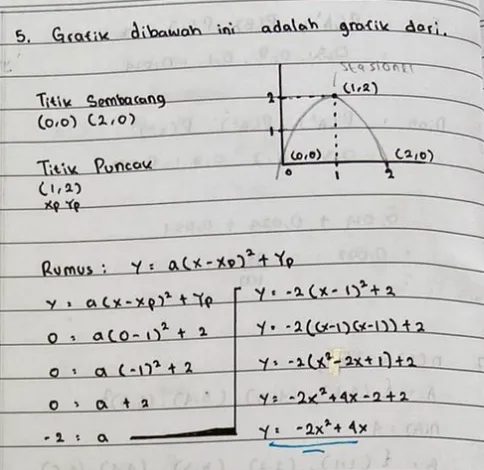 5. Grafik dibawah ini adalah grafik dari.
stasioner
Titik Sembarang
(0,0) (2,0)
2
(1,2)
1
(0,0)
(2,0)
0
1
2
Titik Puncak
(1,2)
xp yp
Rumus : y = a(x-xp)² + Yp
y = a(x-xp)² + Yp
0 = a(0-1)² + 2
0 = a (-1)² + 2
0 = a + 2
-2 = a
y = -2(x-1)²+2
y = -2((x-1)(x-1))+2
y = -2(x²-2x+1)+2
y = -2x²+4x-2+2
y = -2x²+4x